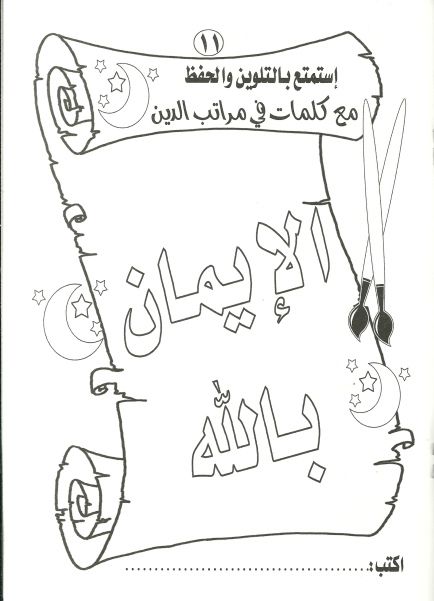 ١١
إستمتع بالتلوين والحفظ
مع كلمات في مراتب الدين
الإيمان
بالله
اكتب:......................................